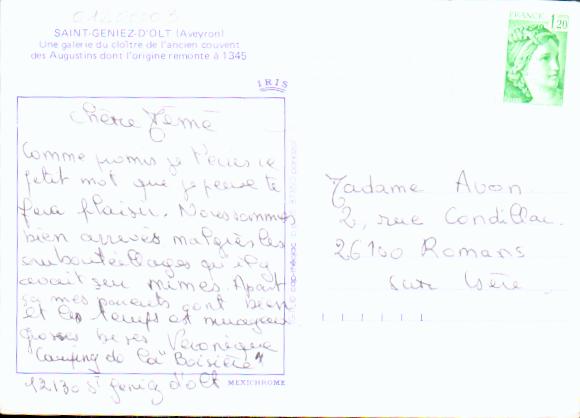 SAINT-GENIEZ-D'OLT (Aveyron)
Une galerie du cloître de l'ancien couvent
des Augustins dont l'origine remonte à 1345
IRIS
FRANCE
1,20
Chère Mémé
Comme promis je t'écris ce
petit mot que je pense te
fera plaisir. Nous sommes
bien arrivés malgrès les
embouteillages qu'il y
avait sur Apart
ça mes parents vont bien
et le temps est nuageux
Grosses bises Véronique
"Camping de la "Boisière"
12130 St geniez d'olt
MEXICHROME
Madame Avon
2, rue Condillac
26100 Romans
sur Isère